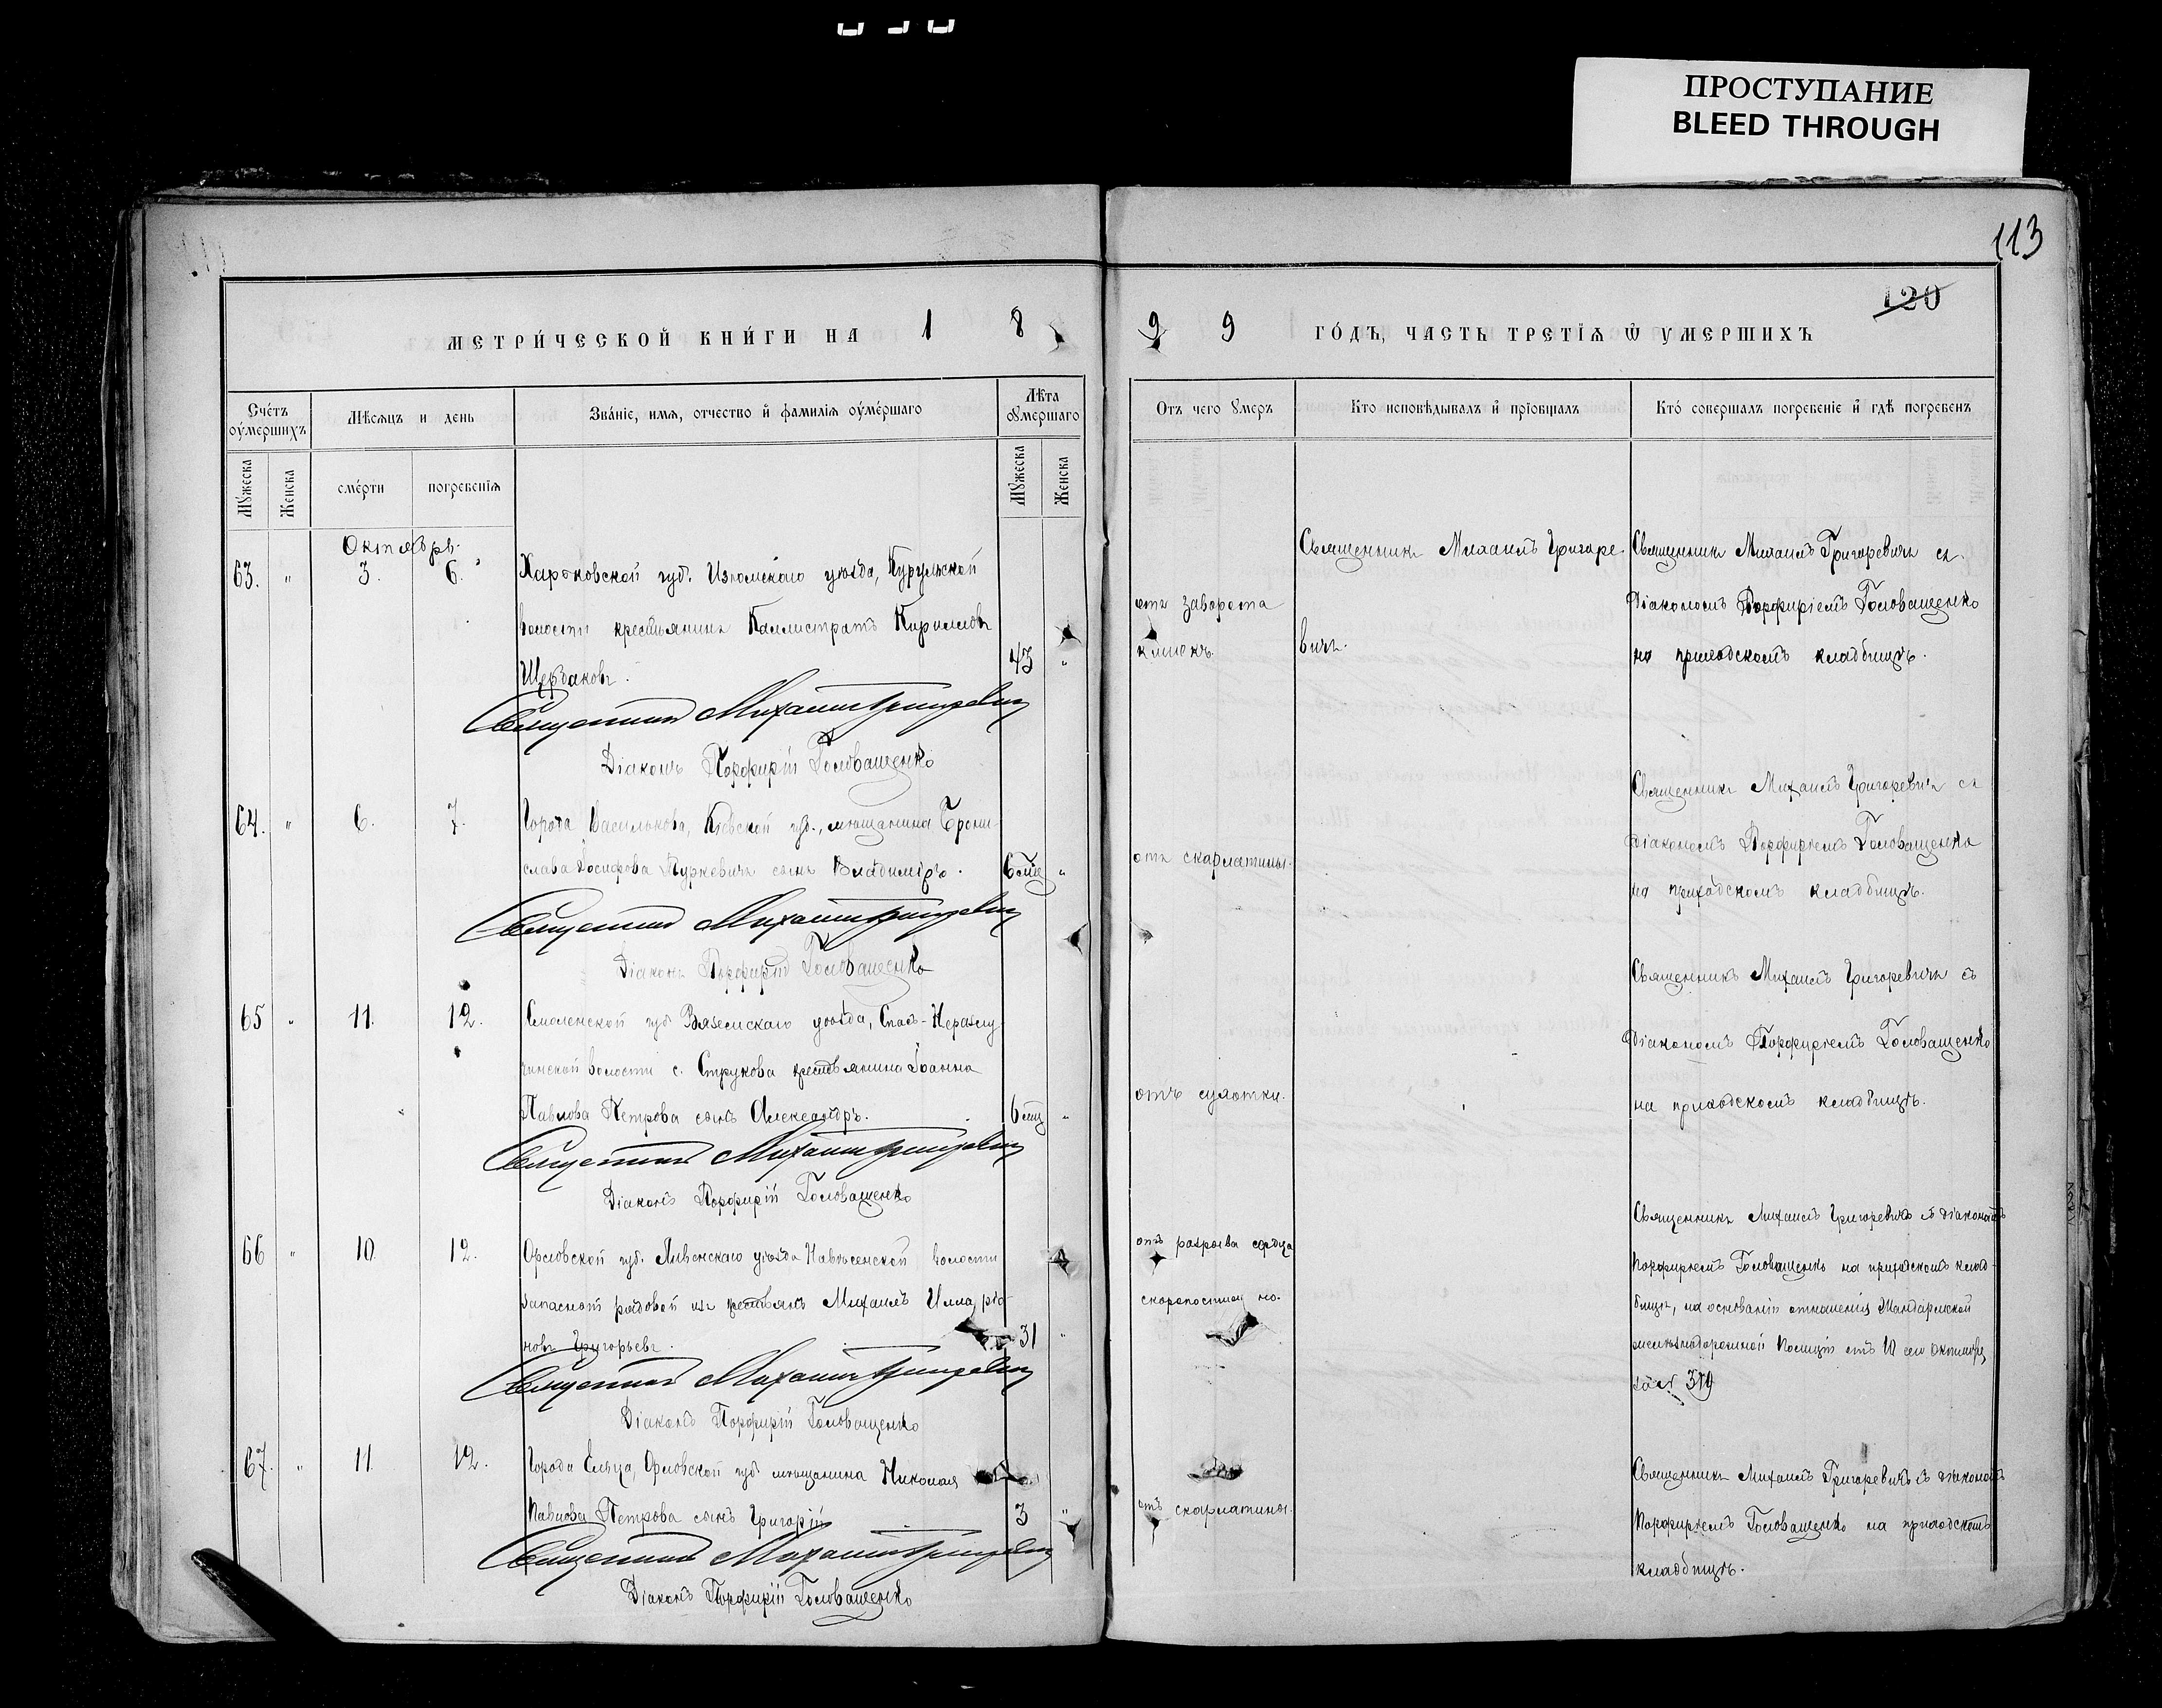 ПРОСТУПАНИЕ
BLEED THROUGH
113
120
МЕТРИ́ЧЕСКОЙ КНИ́ГИ НА 1 8 9 9 ГО́ДЪ, ЧАСТЬ ТРЕТІѦ Ѿ УМЕРШИХЪ
Сче́тъ оу҆ме́ршихъ
Мѣсяцъ и день
Зва́нїе, имѧ, отчество и҆ фамилїѧ оу҆ме́ршаго
Лѣта оумершаго
Отъ чего умеръ
Кто исповѣдывалъ и҆ прїобщалъ
Кто́ совершалъ погребенїе и҆ гдѣ погребенъ
Мужеска
Женска
сме́рти
погребенїѧ
Мужеска
Женска
Октябрь
63. " 3. 6. Харьковской губ. Изюмскаго уѣзда, Курульской
волости крестьянинъ Каллистратъ Кирилловъ
Щербаковъ. 43 "
отъ заворота
кишекъ.
Священникъ Михаилъ Григоре-
вичъ.
Священникъ Михаилъ Григоревичъ съ
Діакономъ Порфиріемъ Головащенко
на приходскомъ кладбищѣ.
Священникъ Михаилъ Григоревич
Діаконъ Порфирій Головащенко
64. " 6. 7. Города Василькова, Кіевской губ., мѣщанина Брони-
слава Іосифова сынъ Владиміръ. "
отъ скарлатины.
Священникъ Михаилъ Григоревичъ съ
Діакономъ Порфиріемъ Головащенко
на приходскомъ кладбищѣ.
Священникъ Михаилъ Григоревич
Діаконъ Порфирій Головащенко
65 " 11. 12. Смоленской губ. Вяземскаго уѣзда, Спасъ-
волости с. Струкова крестьянина Іоанна
Павлова Петрова сынъ Александръ. "
отъ сухотки.
Священникъ Михаилъ Григоревичъ съ
Діакономъ Порфиріемъ Головащенко
на приходскомъ кладбищѣ.
Священникъ Михаилъ Григоревич
Діаконъ Порфирій Головащенко
66 " 10. 12. Орловской губ. Ливенскаго уѣзда волости
запасной рядовой изъ крестьянъ Михаилъ Илларіо-
новъ Григорьевъ. 31 "
отъ разрыва сердца
скоропостижно.
Священникъ Михаилъ Григоревичъ съ діакономъ
Порфиріемъ Головащенко на приходскомъ клад-
бищѣ, на основаніи отношенія
Полиціи отъ сего Октября
за №
Священникъ Михаилъ Григоревич
Діаконъ Порфирій Головащенко
67. " 11. 12. Города Ельца, Орловской губ. мѣщанина Николая
Павлова Петрова сынъ Григорій 3 "
отъ скарлатины.
Священникъ Михаилъ Григоревичъ съ діакономъ
Порфиріемъ Головащенко на приходскомъ
кладбищѣ.
Священникъ Михаилъ Григоревич
Діаконъ Порфирій Головащенко